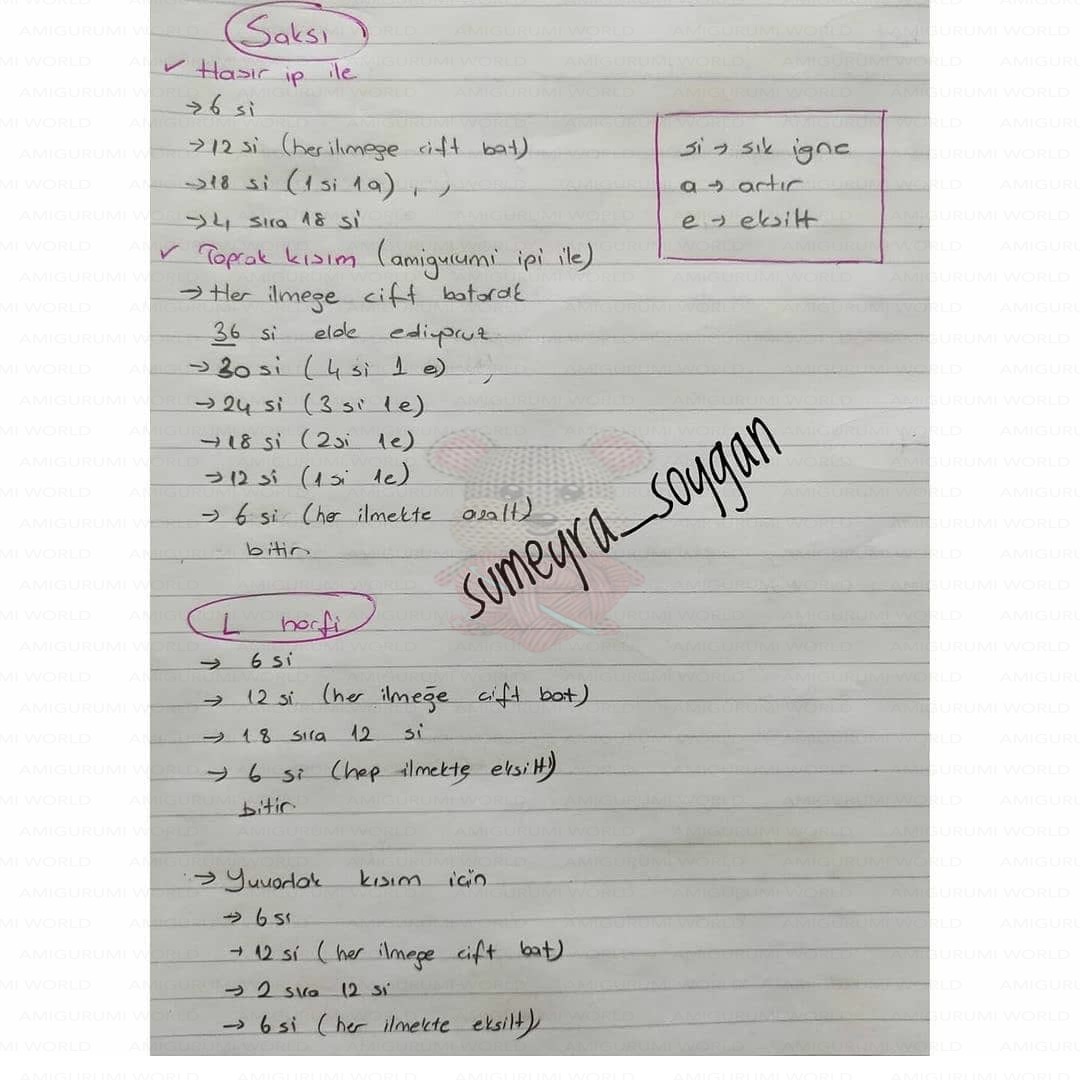 Saksı
✓ Hasır ip ile
→ 6 si
→ 12 si (her ilmeğe çift bat)
→ 18 si (1 si 1a)
→ 4 sıra 18 si
si → sık iğne
a → artır
e → eksilt
✓ Toprak kısım (amigurumi ipi ile)
→ Her ilmege çift batarak
36 si elde ediyoruz
→ 30 si (4 si 1 e)
→ 24 si (3 si 1e)
→ 18 si (2si 1e)
→ 12 si (1 si 1e)
→ 6 si (her ilmekte azalt)
bitir.
sumeyra_soygan
L harfi
→ 6 si
→ 12 si (her ilmeğe çift bat)
→ 18 sıra 12 si
→ 6 si (hep ilmekte eksilt)
bitir
→ Yuvarlak kısım için
→ 6 si
→ 12 si (her ilmege çift bat)
→ 2 sıra 12 si
→ 6 si (her ilmekte eksilt)
AMIGURUMI WORLD